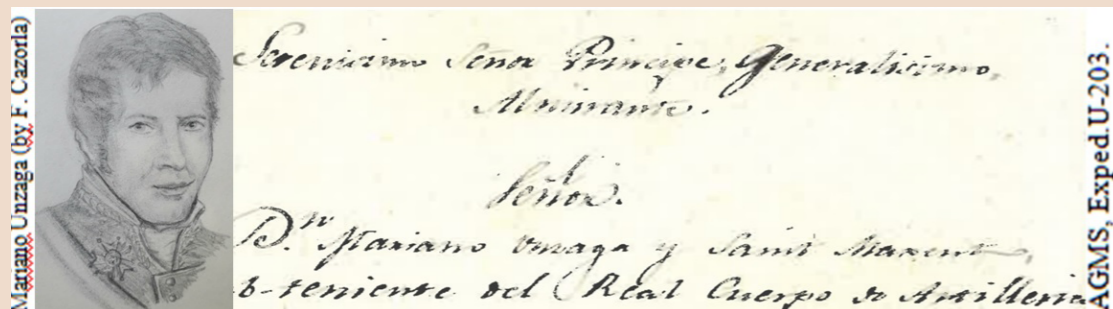 Mariano Unzaga (by F. Cazorla)
Serenisimo Señor Principe, Generalisimo,
Almirante.
Señor.
D.n Mariano Unzaga y Saint Maxent,
b-teniente del Real Cuerpo de Artilleria
AGMS, Exped.U-203.